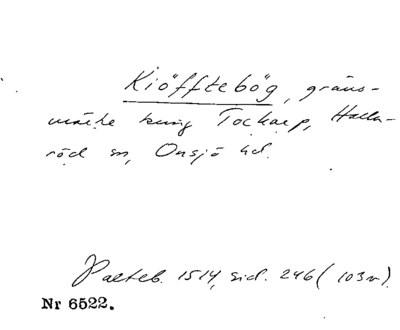 Kiöfftebög, gräns-
märke kring Tockarp, Halla-
röd sn, Onsjö hd.
Palteb. 1514, sid. 246 (103v).
Nr 6522.